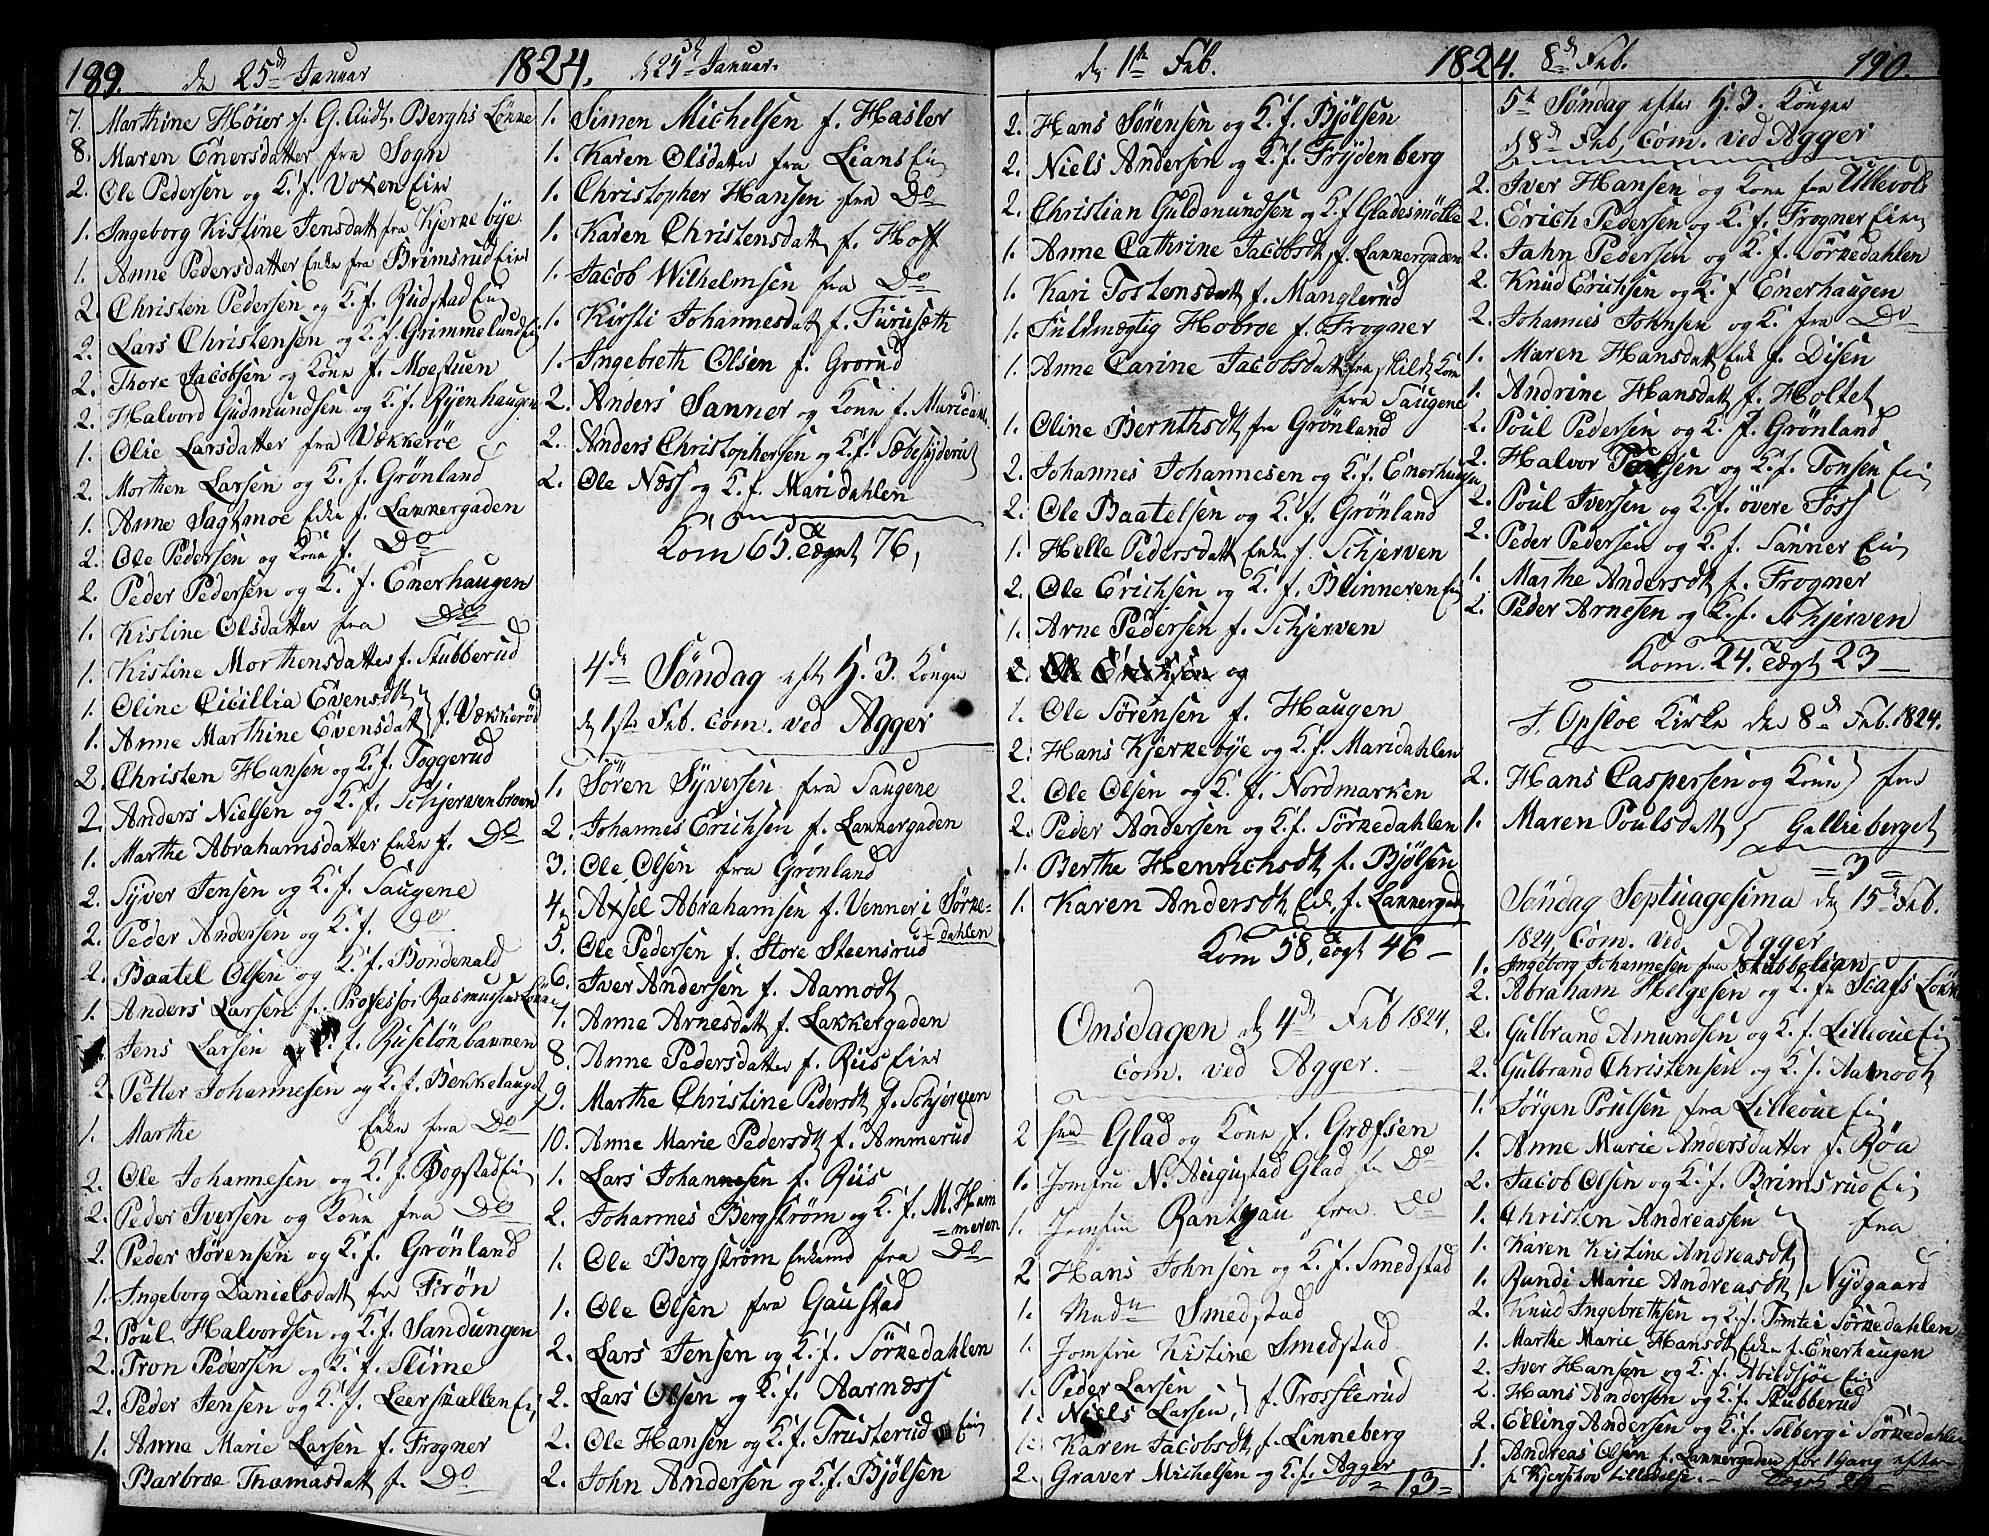 189. de 25de Januar 1824. d 25de Januar.
7. Marthine Höier f. G. Audt. Berghs Lökke
8. Maren Enersdatter fra Sogn
2. Ole Pedersen og K. f. Voxen Eier
1. Ingeborg Kistine Jensdatt fra Kjerkebÿe
1. Anne Pedersdatter Enke fra Brimsrud Eier
2. Christen Pedersen og K. f. Rudstad Ei
2. Lars Christensen og K. f. Grimmelund Ei
2. Thore Jacobsen og Kone f. Moestuen
2. Halvord Gudmundsen og K. f. Rÿenhaugen
1. Olie Larsdatter fra Vækkerøe
2. Morthen Larsen og K. f. Grönland
1. Anne Sagtmoe Enke f. Lakkergaden
2. Ole Pedersen og Kone f. Do
2. Peder Pedersen og K. f. Enerhaugen
1. Kistine Olsdatter fra Do
1. Kistine Morthensdatter f. Stubberud
1. Oline Cicillia Evensdt
1. Anne Marthine Evensdatt f. Vækkerød
2. Christen Hansen og K. f. Toggerud
2. Anders Nielsen og K. f. Schjervenbroen
1. Marthe Abrahamsdatter Enke f. Do
2. Syver Jensen og K. f. Saugene
2. Peder Andersen og K. f. Do
2. Baatel Olsen og K. f. Bondenald
1. Anders Larsen f. Professor Rasmusens Lökke
Jens Larsen f. Ruselönbannen
2. Petter Johannesen og K. f. Bekkelauget
1. Marthe Enke fra Do
2. Ole Johannesen og K. f. Bogstad Ei
2. Peder Iversen og Kone fra Do
2. Peder Sørensen og K. f. Grönland
1. Ingeborg Danielsdatt fra Frön
2. Poul Halvordsen og K. f. Sandungen
2. Tron Pedersen og K. f. Slime
2. Peder Jensen og K. f. Leerskallen Ei
1. Anne Marie Larsen f. Frogner
Barbroe Thomasdatt f. Do
1. Simen Michelsen f. Hasler
1. Karen Olsdatter fra Lians Ei
1. Christopher Hansen fra Do
1. Karen Christensdatt f. Hoff
1. Jacob Wilhelmsen fra Do
1. Kirsti Johannesdatt f. Furusæth
1. Ingebreth Olsen f. Grorud
2. Anders Sanner og Kone f. Maridahl.
2. Anders Christophersen og K. f.
2. Ole Næss og K. f. Maridahlen
Kom 65. Tægt 76,
4de Søndag eft H. 3. Konger
d 1ste Feb. Com. ved Agger
1. Søren Syversen fra Saugene
2. Johannes Erichsen f. Lakkergaden
3. Ole Olsen fra Grønland
4. Axsel Abrahamsen f. Venner i Sörke-
dahlen
5. Ole Pedersen f. Store Steensrud
6. Iver Andersen f. Aamodt
7. Anne Arnesdatt f. Lakkergaden
8. Anne Pedersdatter f. Riis Eier
9. Marthe Christine Pedersdt f. Schjerven
10. Anne Marie Pedersdt f. Ammerud
1. Lars Johannesen f. Riis
2. Johannes Bergstrøm og K. f. M. Ham
meren
1. Ole Bergstrøm Enkemd fra Do
1. Ole Olsen fra Gaustad
2. Lars Jensen og K. f. Sörkedahlen
2. Lars Olsen og K. f. Aarnæss
2. Ole Hansen og K. f. Trusterud Ei
2. John Andersen og K. f. Bjølsen
d 1te Feb. 1824. 8de Feb. 190.
2. Hans Sørensen og K. f. Bjølsen
2. Niels Andersen og K. f. Frydenberg
2. Christian Guldmundsen og K. f Gladesmølle
1. Anne Cathrine Jacobsdt f. Lakkergaden
1. Kari Tostensdatt f. Manglerud
1. Fuldmægtig Hobroe f. Frogner
1. Anne Carine Jacobsdatt
fra Saugene
1. Oline Bernthsdt fra Grønland
2. Johannes Johannesen og K. f. Enerhaugen
2. Ole Baatelsen og K. f. Grønland
1. Helle Pedersdatt Enke f. Schjerven
2. Ole Erichsen og K. f. Blinneren Ei
1. Arne Pedersen f. Schjerven
2. Ole Erichsen og
1. Ole Sørensen f. Haugen
2. Hans Kjerkebÿe og K. f. Maridahlen
2. Ole Olsen og K. f. Nordmarken
2. Peder Andersen og K. f. Sörkedahlen
1. Berthe Henrichsdt f. Bjølsen
1. Karen Andersdt Enk. f. Lakkergad
Kom 58, Tægt 46 -
Onsdagen d 4de Feb 1824,
Com. ved Agger.
2 Glad og Kone f. Græfsen
1. Jomfru N. Augustad Glad f. Do
1. Jomfru Rantzau fra Do
2 Hans Johnsen og K. f. Smedstad
1. Mad Smedstad
1. Jomfru Kistine Smedstad
1. Peder Larsen
1. Niels Larsen, f. Trosterud
1. Karen Jacobsdt f. Linneberg
2. Graver Michelsen og K. f. Agger
13
5te Søndag efter H. 3. Konger
d 8de Feb, Com. ved Agger
2. Iver Hansen og Kone fra Ullevold
2. Erich Pedersen og K. f. Frogner Ei
2. Jahn Pedersen og K. f. Sörkedahlen
2. Knud Erichsen og K. f Enerhaugen
2. Johannes Johnsen og K. fra Do
1. Maren Hansdatt Enk f. Disen
1. Andrine Hansdatt f. Holtet
2. Poul Pedersen og K. f. Grønland
2. Halvor Poulsen og K. f. Tonsen Ei
2. Poul Iversen og K. f. øvere Foss
2. Peder Pedersen og K. f. Sanner Ei
1. Marthe Andersdt f. Frogner
2. Peder Arnesen og K. f. Schjerven
Kom. 24. Tægt 23 -
I Opsloe Kirke den 8de Feb. 1824.
2. Hans Caspersen og Kone fra
1. Maren Poulsdatt Gallieberget
3
Søndag Septuagesima den 15de Feb.
1824, Com. ved Agger
1. Ingeborg Johannesen fra Stubbelian
2. Abraham Helgesen og K. fr Scafs Løkke
2. Gulbrand Amundsen og K. f. Lilleoue Ei
2. Gulbrand Christensen og K. f. Aamodt
1. Jørgen Poulsen fra Lilleoue Ei
1. Anne Marie Andersdatter f. Røa
2. Jacob Olsen og K. f. Brimsrud Ei
1. Christen Andreassen fra
1. Karen Kistine Andreasdt
1. Rundi Marie Andreasdt Nÿdgaard
2. Knud Ingebrethsen og K. f. Tomte i Sörkedahlen
1. Marthe Marie Hansdt Enke f. Enerhaugen
2. Iver Hansen og K. f. Abildsjøe Ei
2. Hans Andersen og K. f. Stubberud Eie
2. Elling Andersen og K. f. Solberg i Sörkedahlen
1. Andreas Olsen f. Lakkergaden for 1 Gang efter
Tægt 29 -